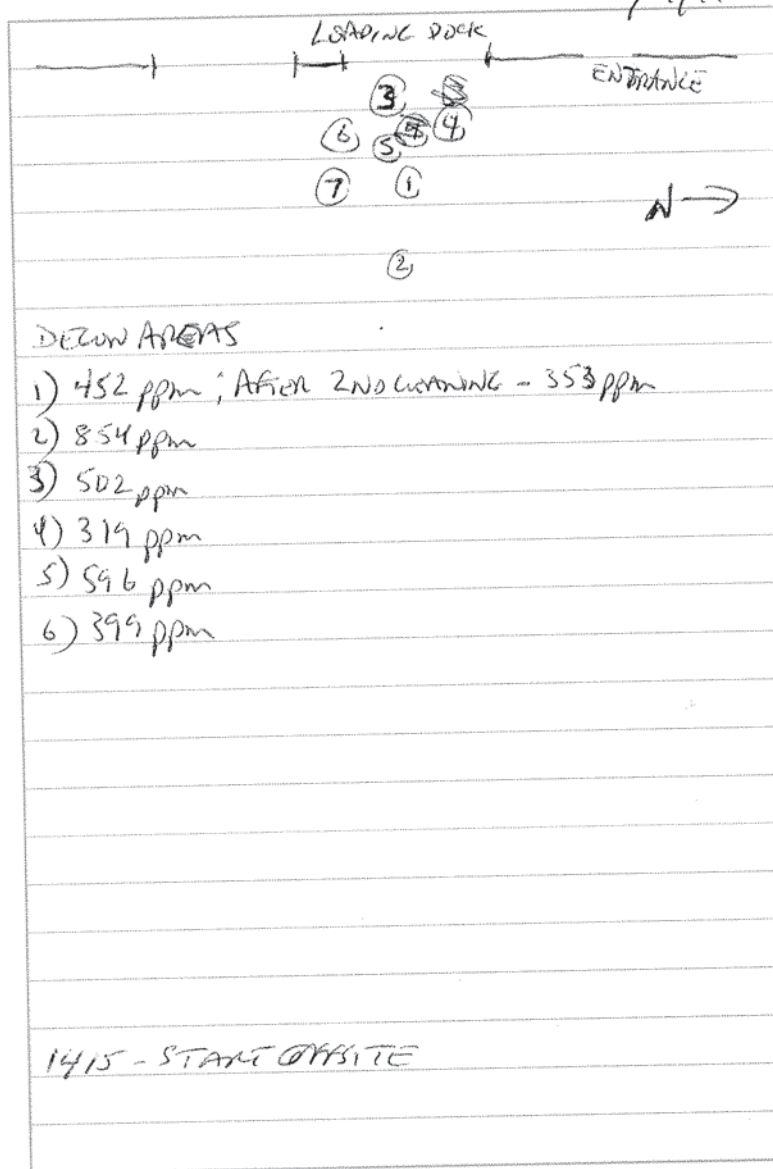 LOADING DOCK
ENTRANCE
3
6 5 4
7 1
N
2
DECON AREAS
1) 452 ppm; AFTER 2ND CLEANING - 353 ppm
2) 854 ppm
3) 502 ppm
4) 319 ppm
5) 596 ppm
6) 399 ppm
1415 - START OFFSITE